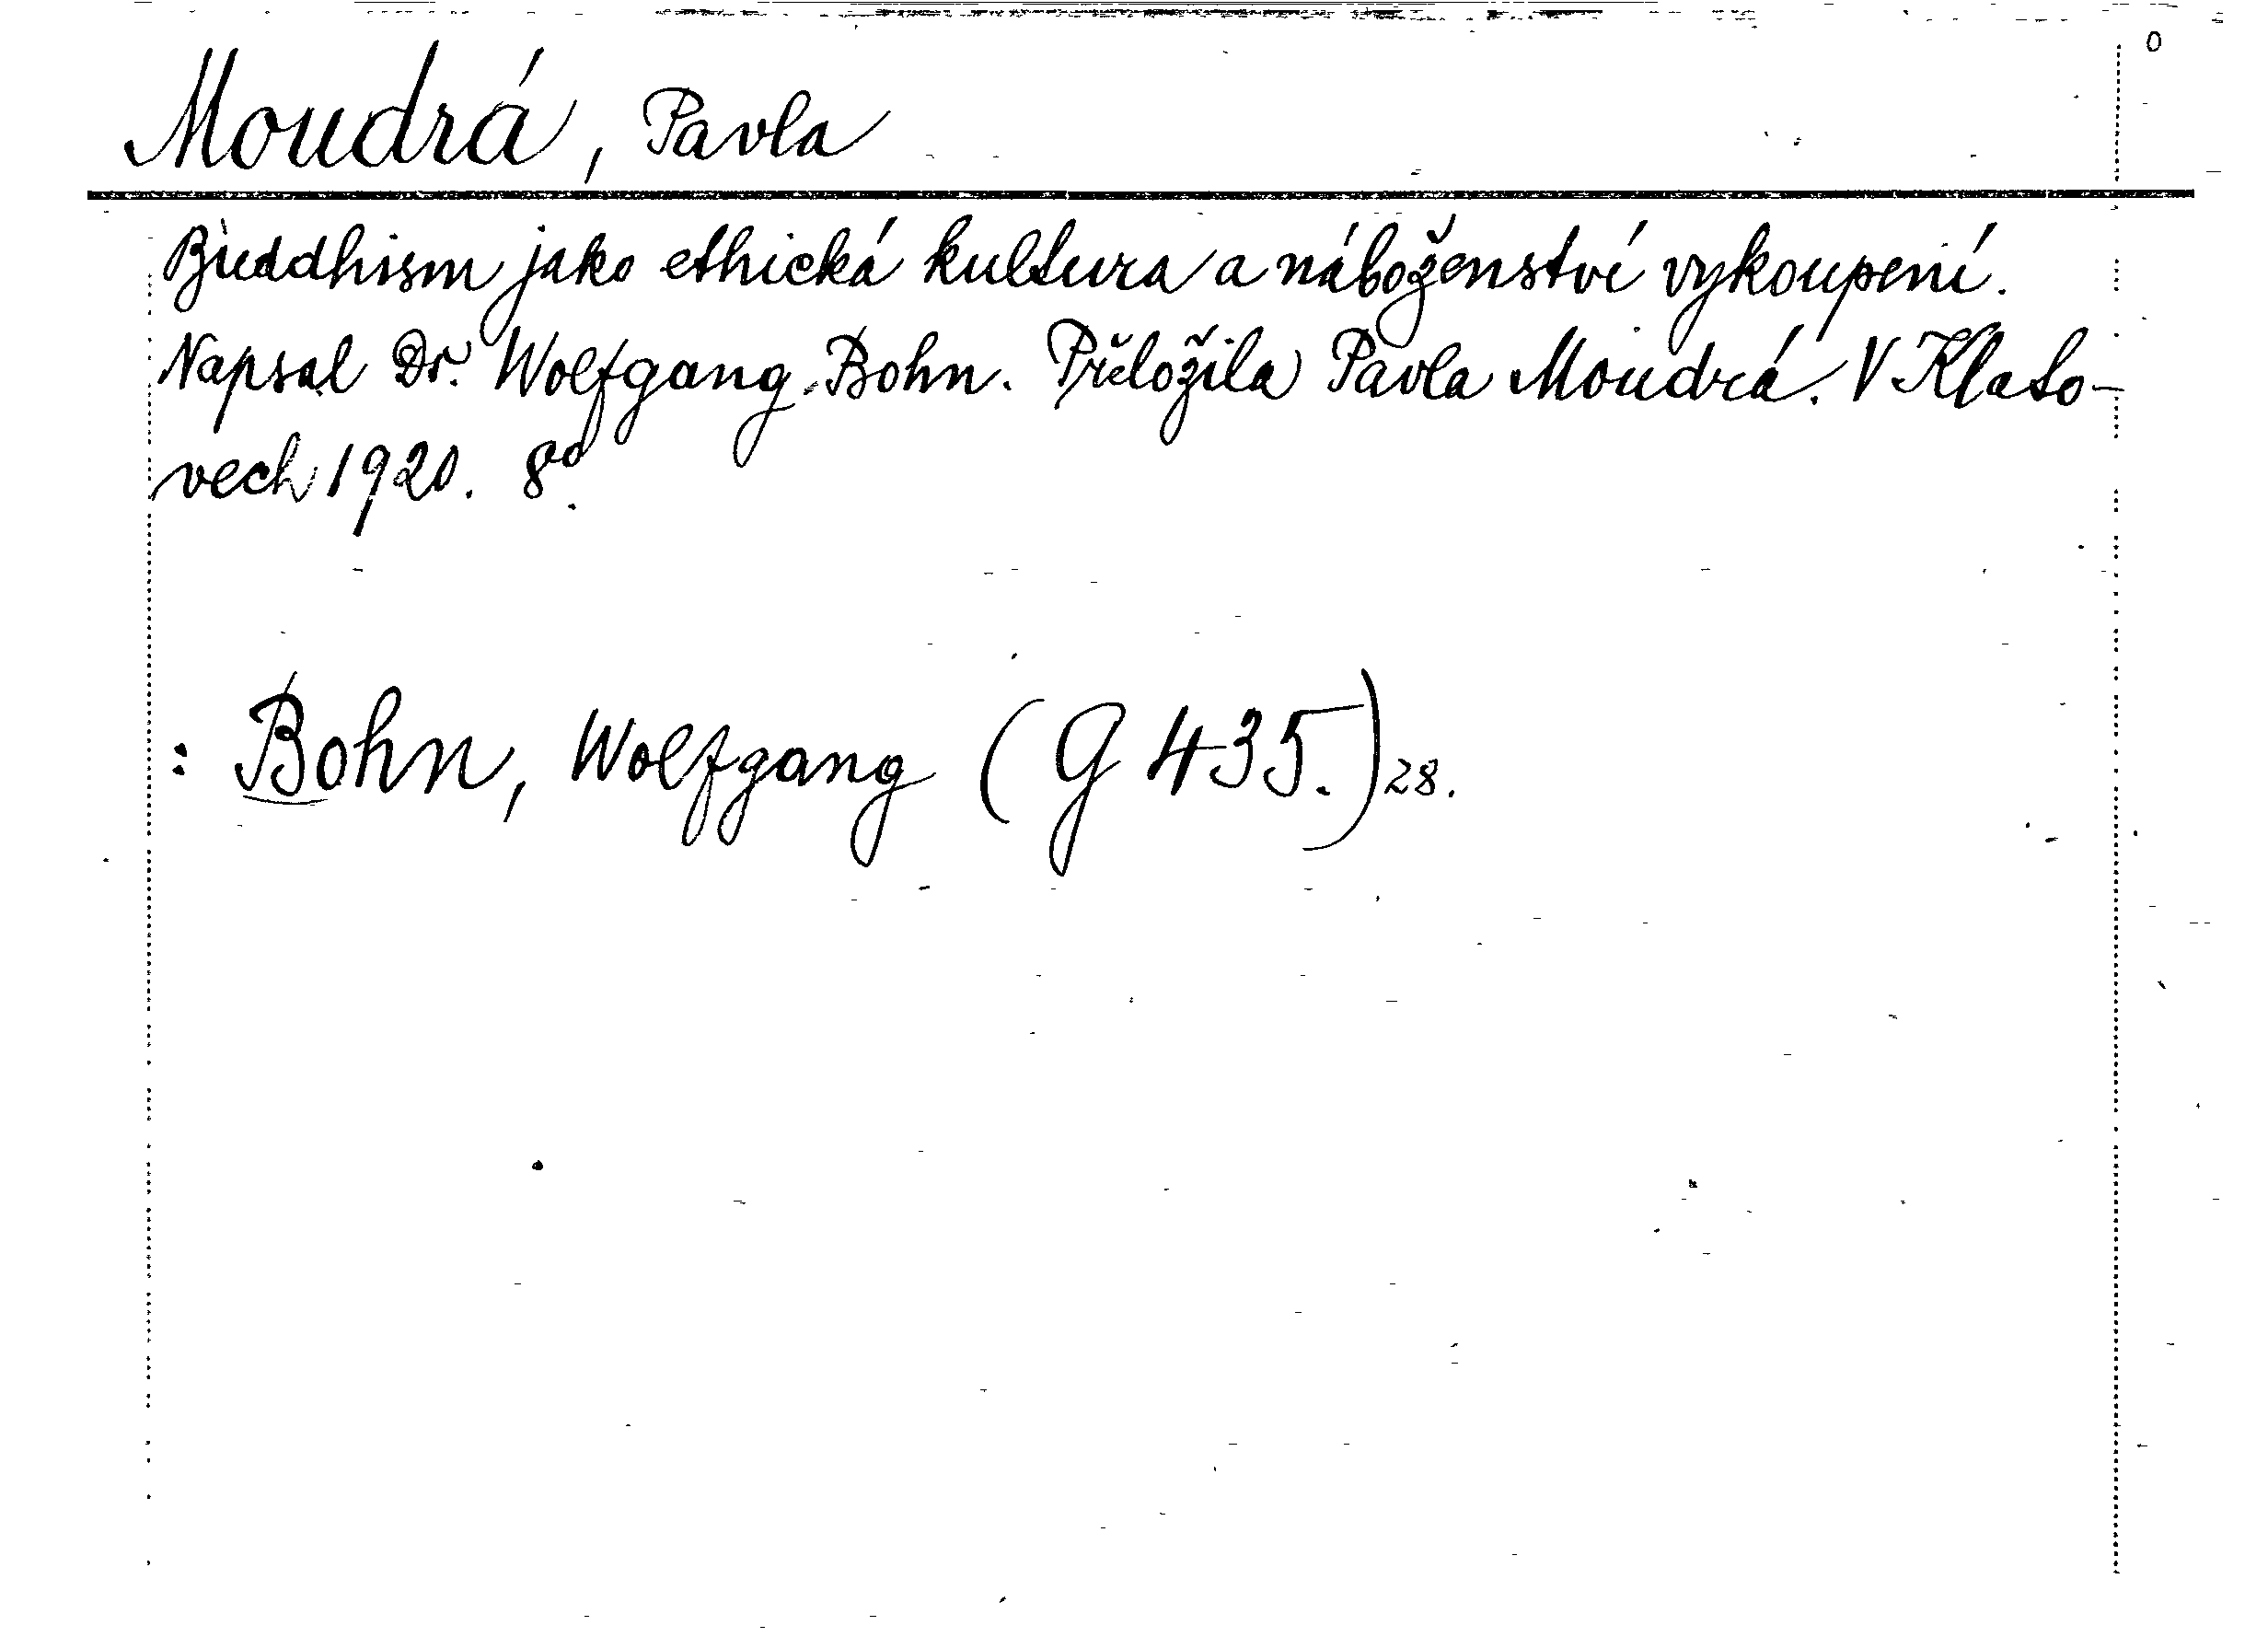 Moudrá, Pavla
Buddhism jako ethická kultura a náboženství vykoupení.
Napsal Dr. Wolfgang Bohn. Přeložila Pavla Moudrá. V Klato-
vech 1920. 8°.
: Bohn, Wolfgang (G 435.) 28.